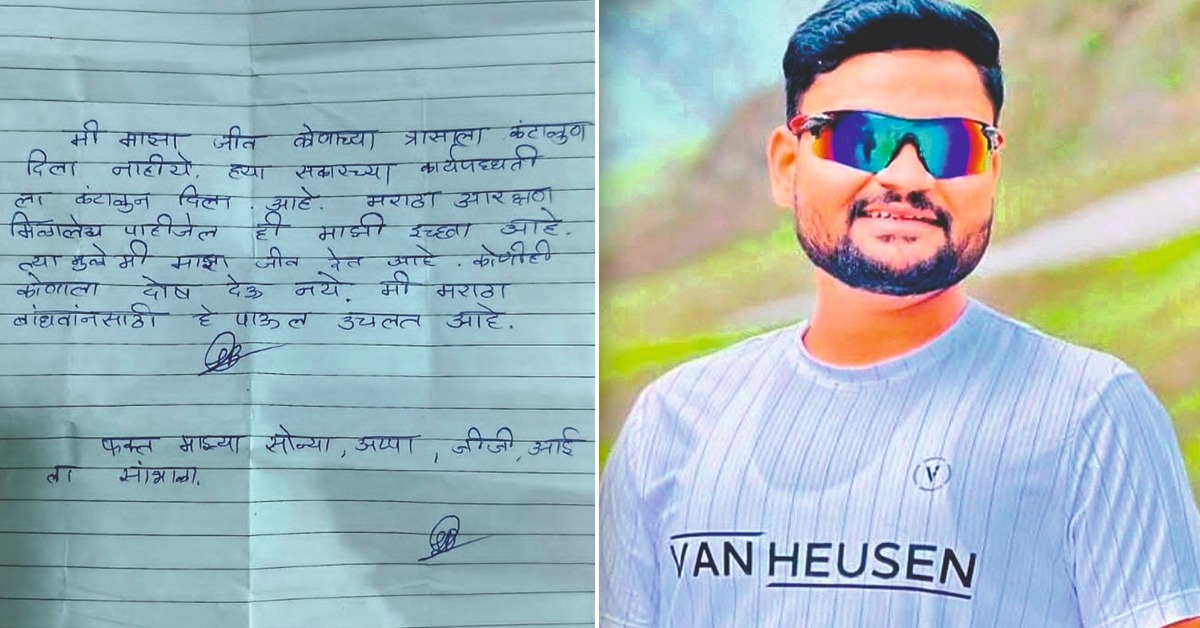 मी माझा जीव कोणाच्या त्रासाला कंटाळुण
दिला नाहीये. ह्या सकारच्या कार्यपध्धती
ला कंटाळुन दिला आहे. मराठा आरक्षण
मिळालेच पाहीजेल ही माझी इच्छा आहे.
त्या मुळे मी माझा जीव देत आहे. कोणीही
कोणाला दोष देऊ नये. मी मराठा
बांधवांनसाठी हे पाऊल उचलत आहे.
फक्त माझ्या सोन्या, अप्पा, जीजी, आई
ला सांभाळा.
V
VAN HEUSEN